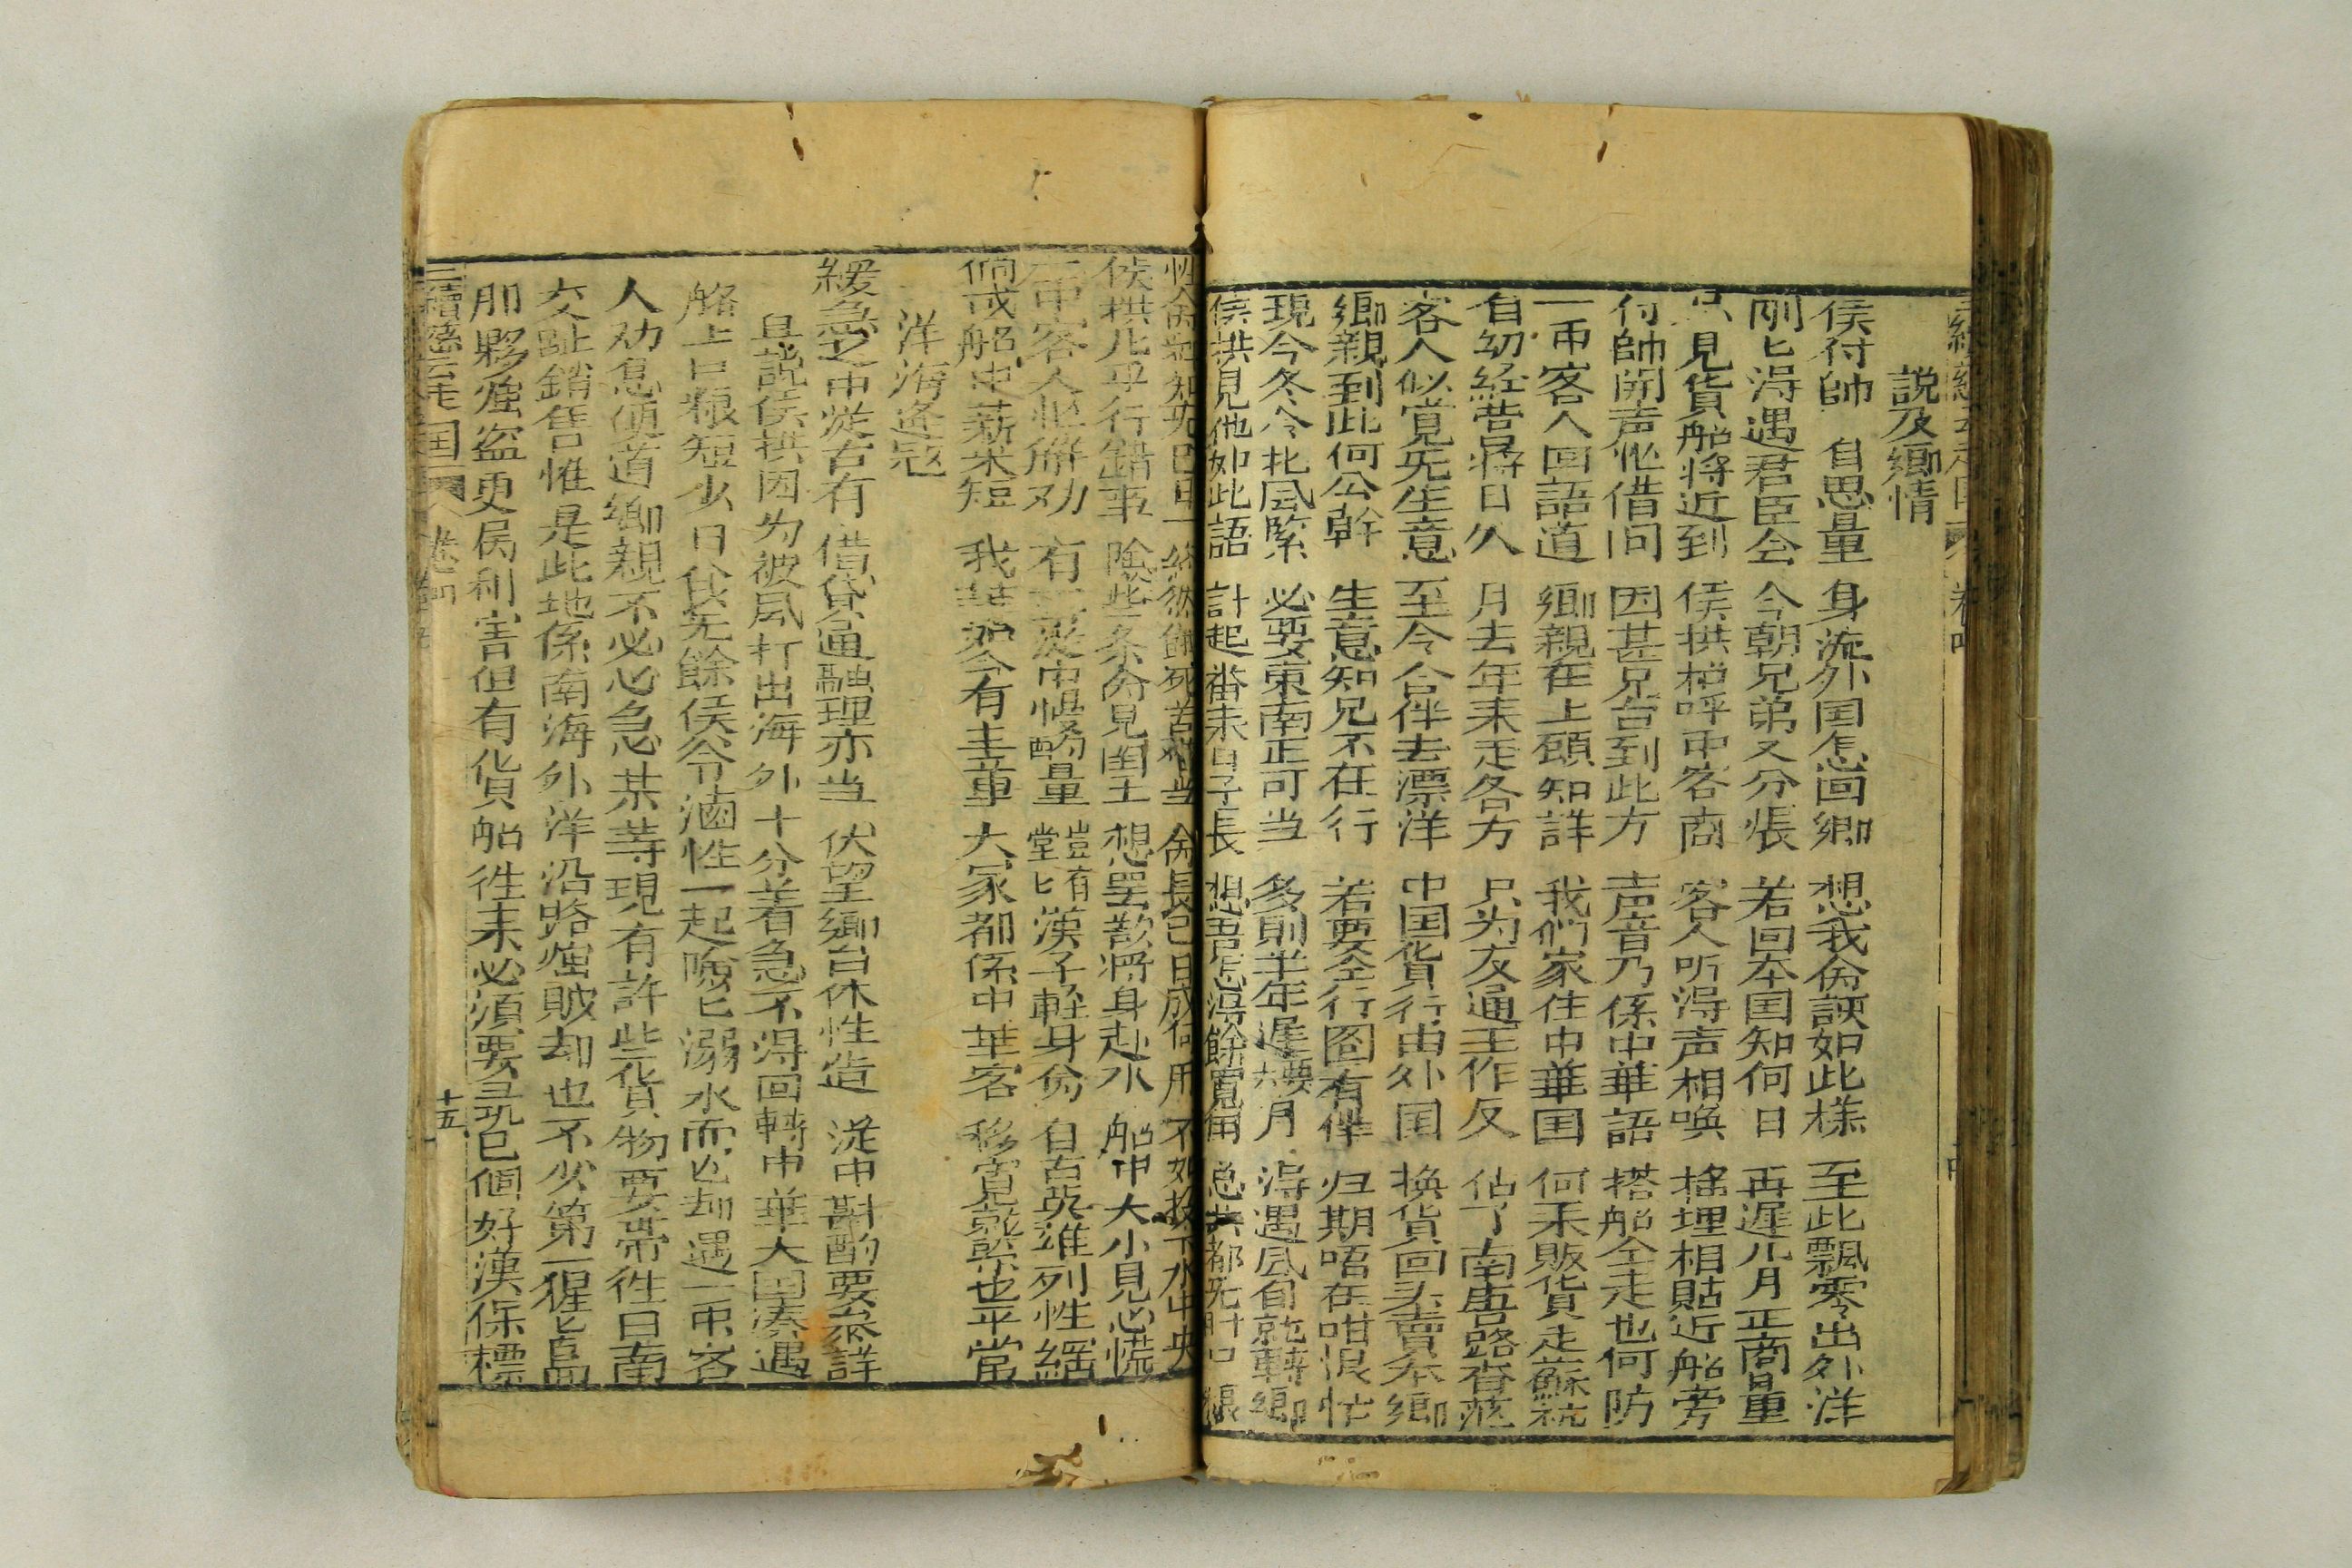 説及鄉情
侯付帥 自思量 身流外国怎回鄉 想我侖諛如此様 至此飄零出外洋
刚匕得遇君臣会 今朝兄弟又分張 若回本国知何日 再遲几月正商量
只見貨船將近到 侯拱招呼帀客商 客人听得声相喚 揺埋相貼近船旁
付帥開声忙借问 因甚兄台到此方 声音乃係中華語 搭船仝走也何防
一帀客人回語道 鄉親在上願知詳 我們家住中華国 何耒販貨走蘇杭
自幼経营尋日久 月去年耒走各方 只为友通王作反 佔了南唐路脊茫
客人似覚先生意 至今合伴去漂洋 中国貨行由外国 換貨回头賣本鄉
鄉親到此何公幹 生意知兄不在行 若要仝行固有伴 归期唔在咁很忙
現今冬令北風緊 必要東南正可当 多則半年遲六要月 得遇風自就轉鄉
侯拱見他如此語 計起番耒日子長 想吾怎得餘寬用 总共都无肘口粮
終然餓死苦难当 侖長己日成何用 不如投下水中央
侯拱几乎行錯事 険些条侖見閻王 想罢歆將身赴水 船中大小見心慌
一帀客人忙觧劝 有事從中慢酌量 豈有堂匕漢子軽身侖 自古英雄列性綱
倘或船中薪米短 我華如今有主章 大家都係中華客 移寬就緊也平常
洋海逢冦
緩急之中從古有 借貸通融理亦当 伏望鄉台休性造 從中斟酌要叅詳
且説侯拱因为被風打出海外十分着急不得回轉中華大国湊遇
船上口粮短少日食无餘侯令滷性一起険匕溺水而亡却遇一帀客
人劝息便道鄉親不必心急某等現有許些貨物要帶往日南
交趾銷售惟是此地係南海外洋沿路強賊却也不少第一猩匕島
肥夥強盗更属利害但有貨船徃耒必須要尋几個好漢保標
十五